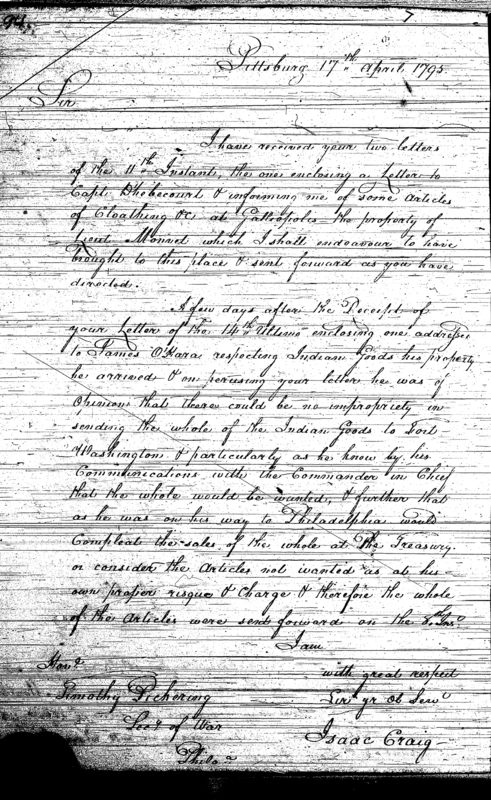 94.
7
Pittsburg 17th April 1795
Sir
I have received your two letters
of the 11th Instant, the one enclosing a Letter to
Capt. Dhebecourt & informing me of some Articles
of Cloathing &c at Galliopolis the property of
Lieut. Monvet which I shall endeavour to have
brought to this place & sent forward as you have
directed.
A few days after the Receipt of
your Letter of the 14th Ultimo enclosing one address'd
to James O'Hara respecting Indian Goods his property
he arrived & on perusing your letter he was of
Opinion that there could be no impropriety in
sending the whole of the Indian Goods to Fort
Washington & particularly as he knew by his
Communications with the Commander in Chief
that the whole would be wanted, & further that
as he was on his way to Philadelphia would
Compleat the sales of the whole at the Treasury
or consider the Articles not wanted as at his
own proper risque & Charge & therefore the whole
of the Articles were sent forward on the Inst
I am
Honl
Timothy Pickering
Secy of War
Phila
with great respect
Sir yr Ob Servt
Isaac Craig